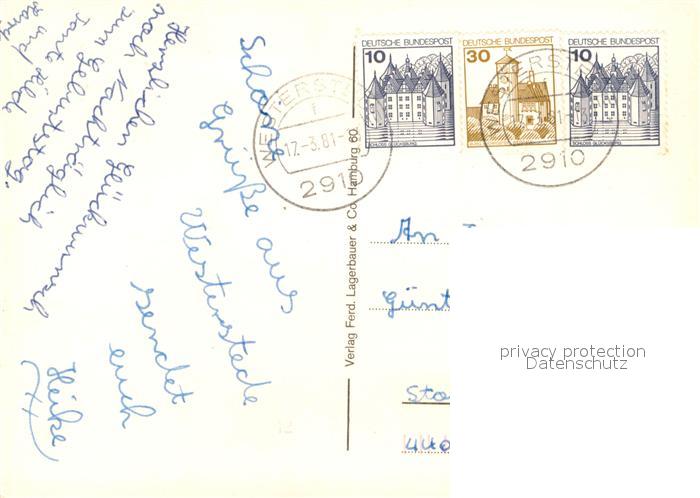 Schöne
Grüße aus
Westerstede
sendet
euch
Heike
Herzlichen Glückwunsch
nach Nachträglich
zum Geburtstag.
Tante Hilde
und
DEUTSCHE BUNDESPOST
10
SCHLOSS GLÜCKSBURG
DEUTSCHE BUNDESPOST
30
DEUTSCHE BUNDESPOST
10
SCHLOSS GLÜCKSBURG
17.-3.81
2910
2910
Verlag Ferd. Lagerbauer & Co. Hamburg 60
An
Günt
Sta
440
privacy protection
Datenschutz